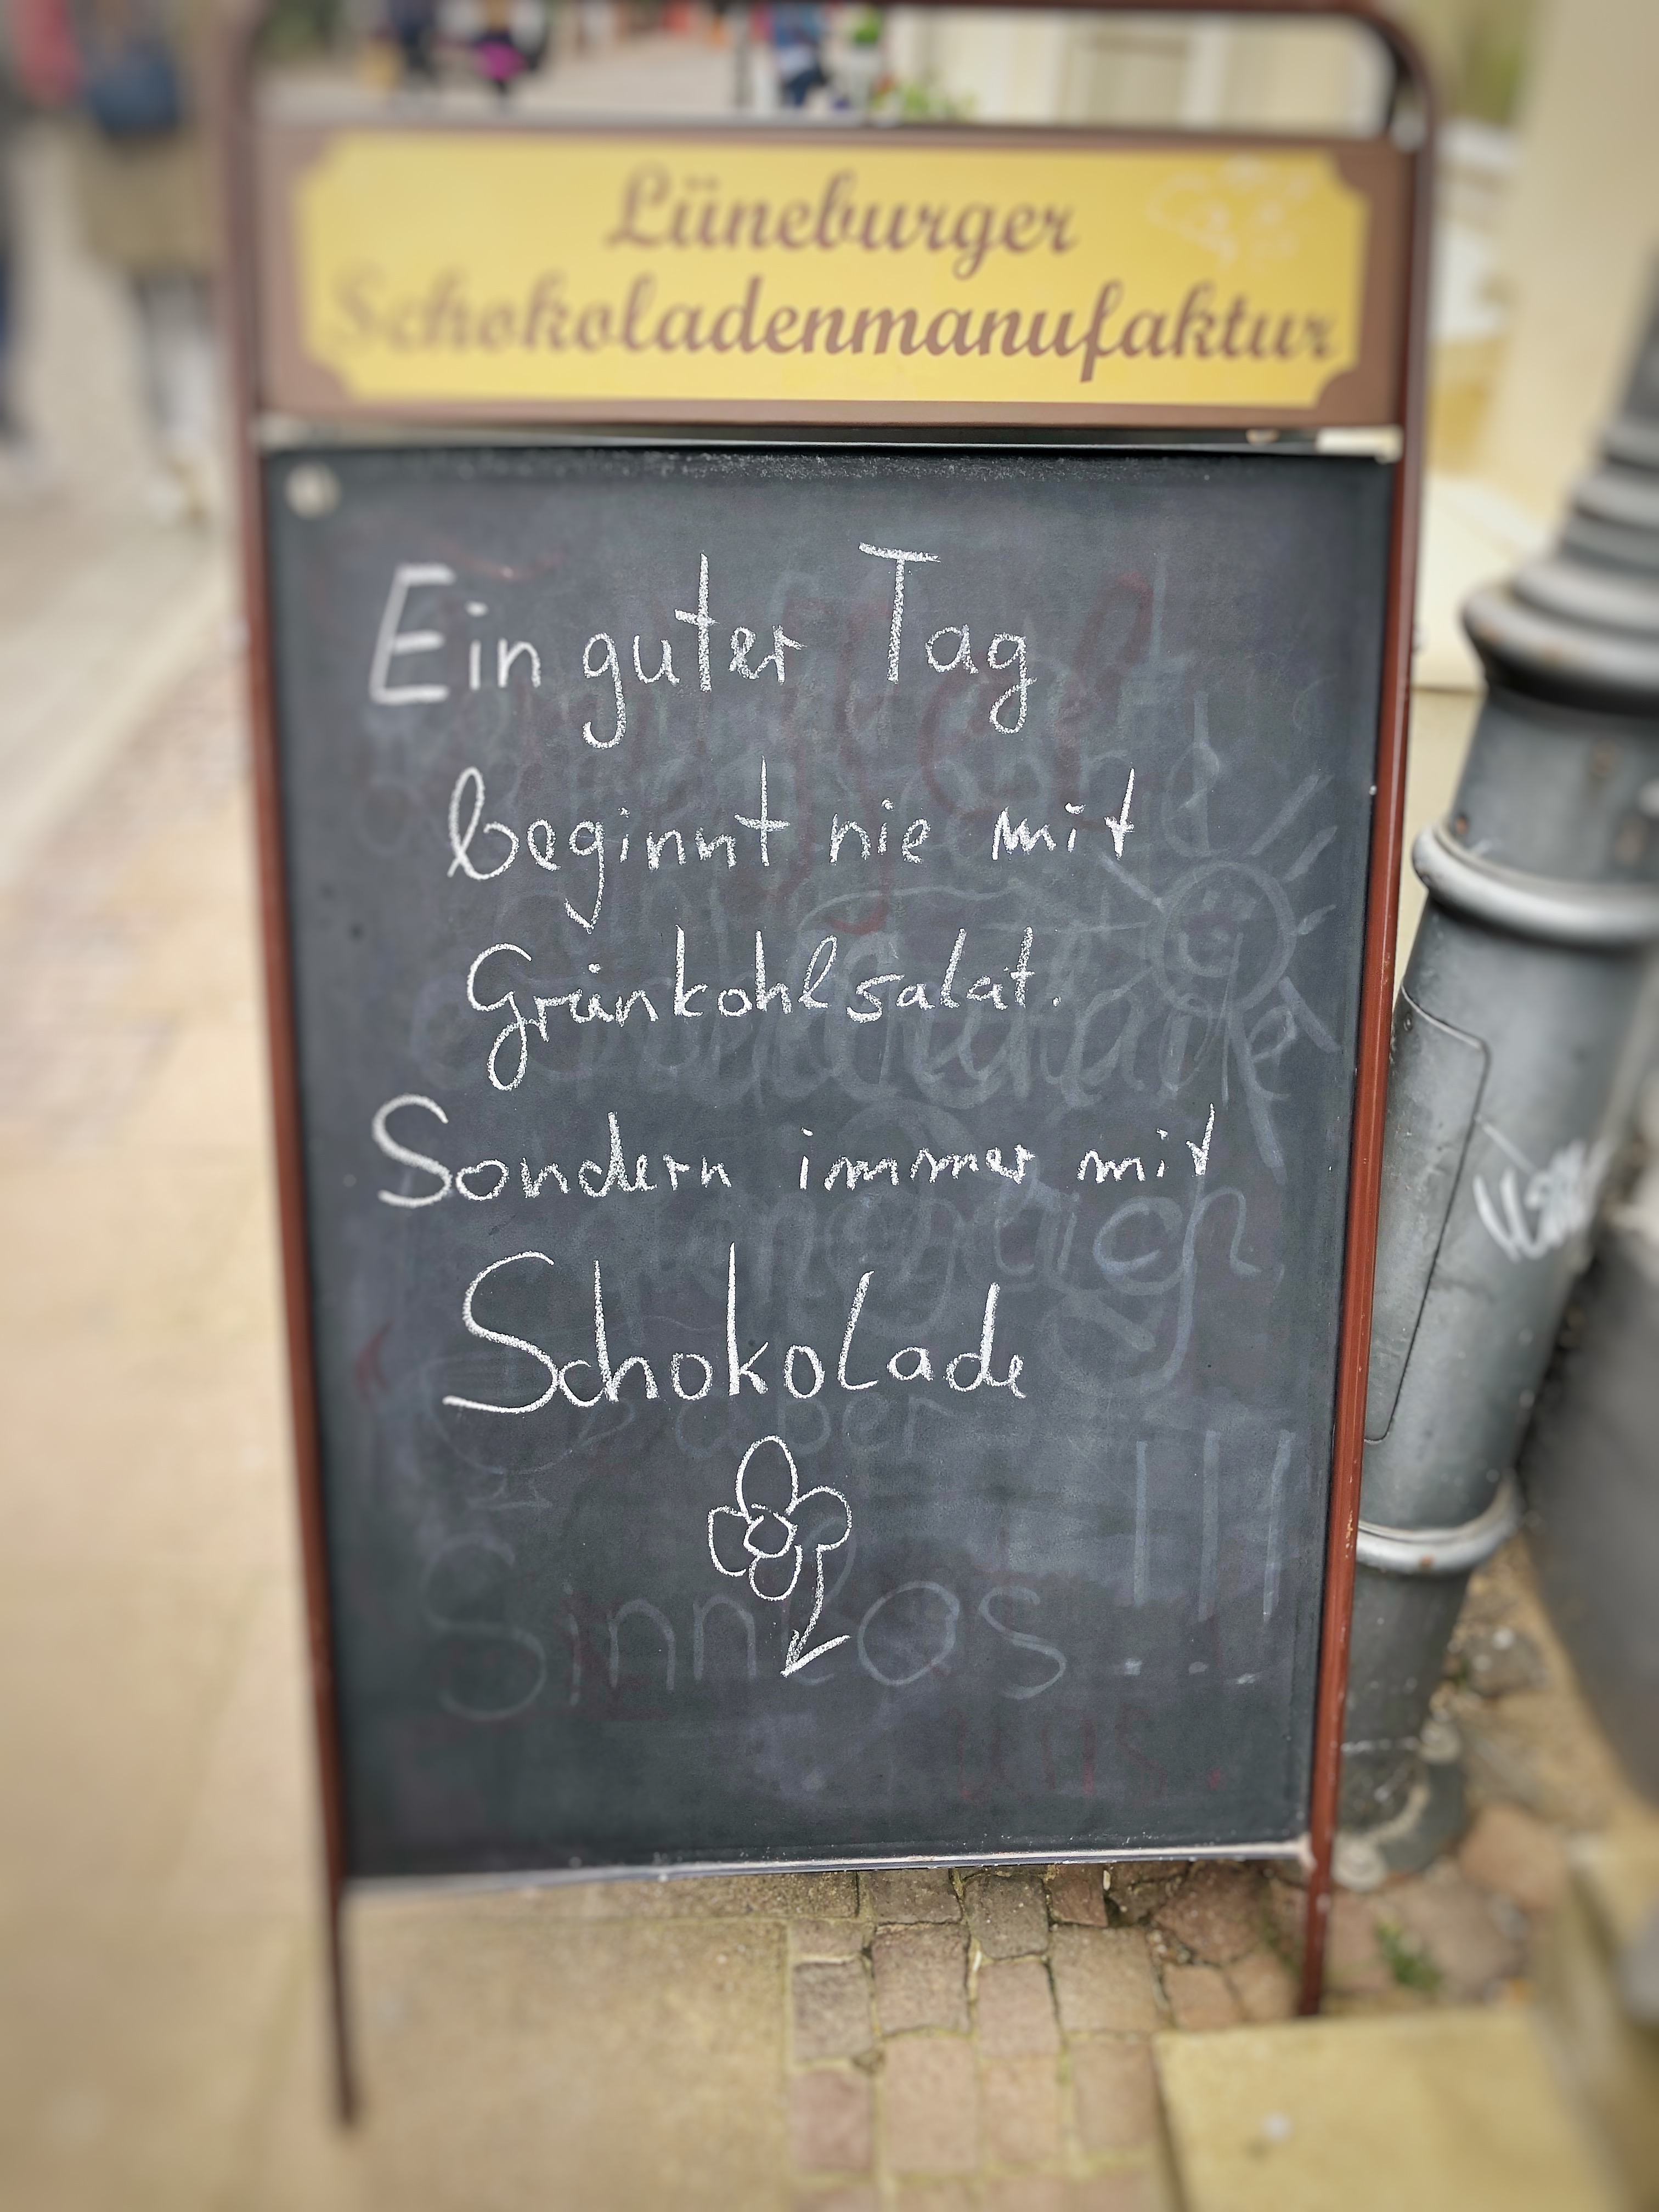 Lüneburger
Schokoladenmanufaktur
Ein guter Tag
beginnt nie mit
Grünkohlsalat.
Sondern immer mit
Schokolade
aber
Sinnlos